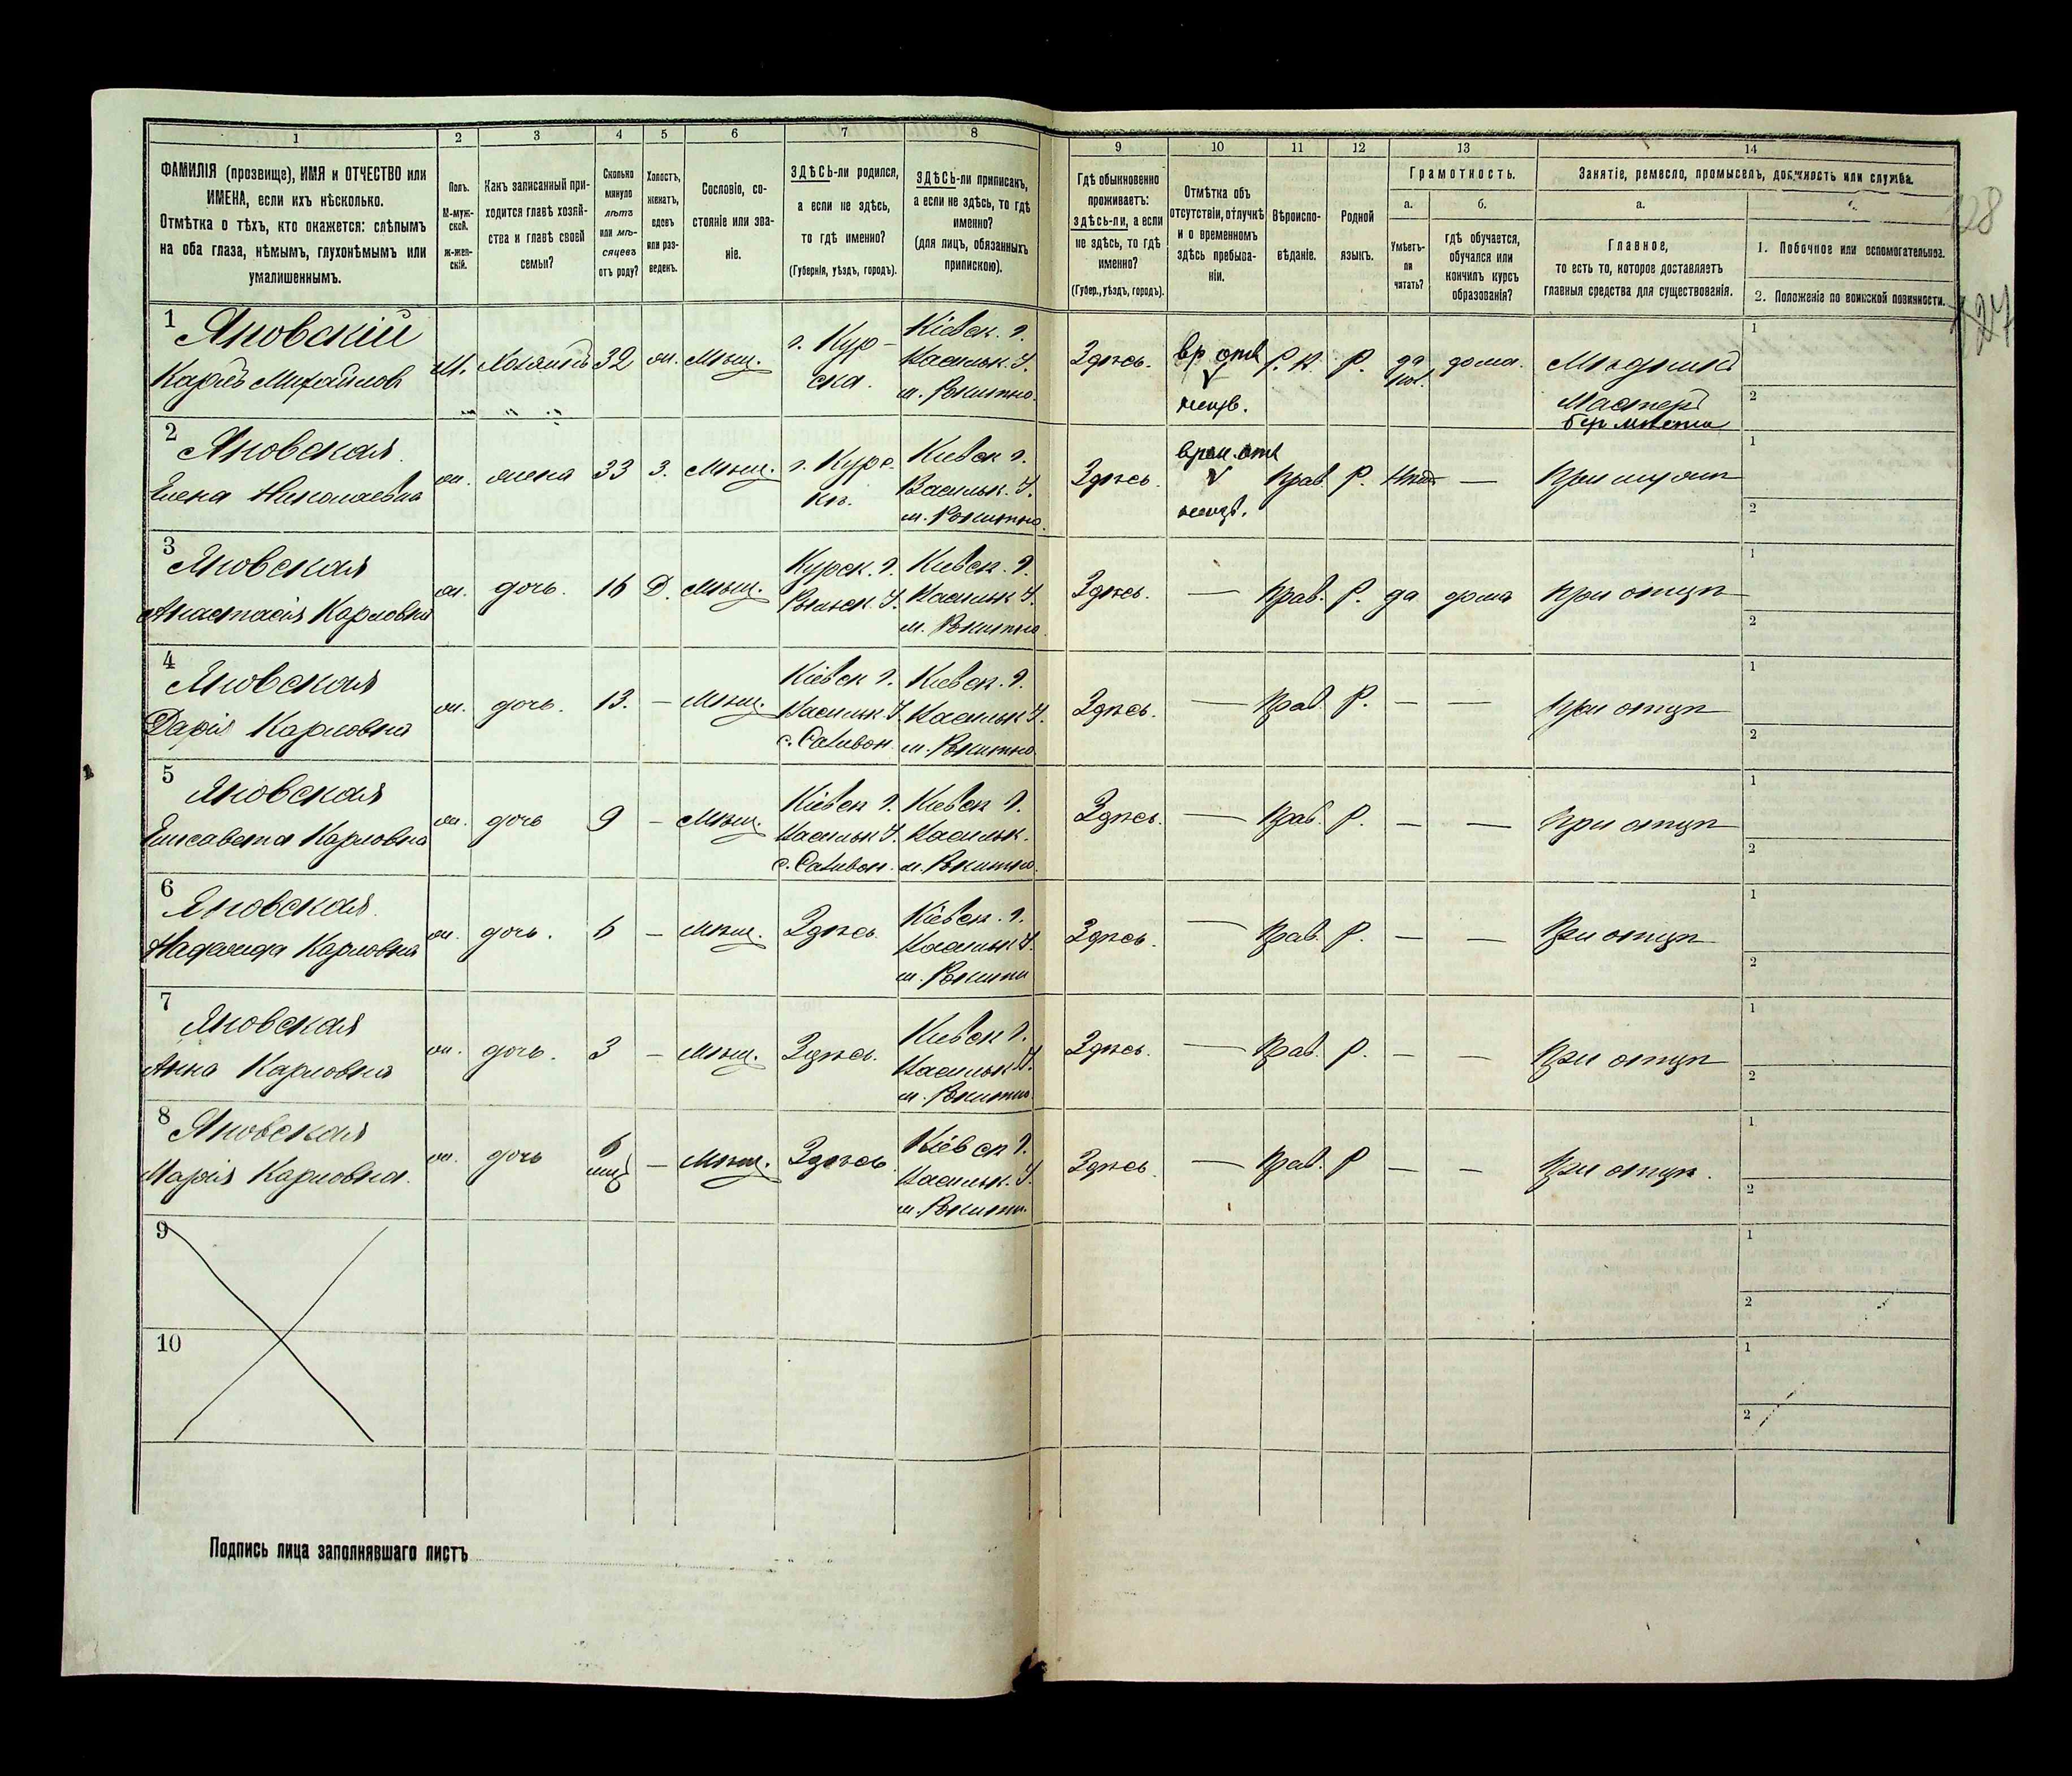 1 2 3 4 5 6 7 8
ФАМИЛІЯ (прозвище), ИМЯ и ОТЧЕСТВО или
ИМЕНА, если ихъ нѣсколько.
Отмѣтка о тѣхъ, кто окажется: слѣпымъ
на оба глаза, нѣмымъ, глухонѣмымъ или
умалишеннымъ.
Полъ.
М-муж-
ской.
Ж-жен-
скій.
Какъ записанный при-
ходится главѣ хозяй-
ства и главѣ своей
семьи?
Сколько
минуло
лѣтъ
или мѣ-
сяцевъ
отъ роду?
Холостъ,
женатъ,
вдовъ
или раз-
веденъ.
Сословіе, со-
стояніе или зва-
ніе.
ЗДѢСЬ-ли родился,
а если не здѣсь,
то гдѣ именно?
(Губернія, уѣздъ, городъ).
ЗДѢСЬ-ли приписанъ,
а если не здѣсь, то гдѣ
именно?
(для лицъ, обязанныхъ
припискою).
9 10 11 12 13 14
Гдѣ обыкновенно
проживаетъ:
здѣсь-ли, а если
не здѣсь, то гдѣ
именно?
(Губер., уѣздъ, городъ).
Отмѣтка объ
отсутствіи, отлучкѣ
и о временномъ
здѣсь пребыва-
ніи.
Вѣроиспо-
вѣданіе.
Родной
языкъ.
Грамотность.
а.
Умѣетъ-
ли
читать?
б.
гдѣ обучается,
обучался или
кончилъ курсъ
образованія?
Занятіе, ремесло, промыселъ, должность или служба.
а.
Главное,
то есть то, которое доставляетъ
главныя средства для существованія.
1. Побочное или вспомогательное.
2. Положеніе по воинской повинности.
1
Яновскій
Карлъ Михайловъ
М. Хозяинъ 32 ж. Мѣщ.
г. Кур-
ска.
Кіевск. г.
Васильк. У.
м. Рокитно.
Здѣсь.
Р. К. Р. да дома.
Мѣдникъ
Мастеръ
1
2
2
Яновская
Елена Николаевна
ж. жена 33 З. Мѣщ.
г. Курс-
Киевск г.
Васильк. У.
м. Рокитно.
Здѣсь.
Прав. Р. —
При мужѣ
1
2
3
Яновская
Анастасія Карловна
ж. дочь. 16 Д. Мѣщ.
Курск. г.
Рыльск У.
Киевск. г.
Васильк У.
м. Рокитно
Здѣсь. — Прав. Р. да дома При отцѣ
1
2
4
Яновская
Дарія Карловна
ж. дочь. 13. — Мѣщ.
Кіевск г.
Васильк У.
Киевск. г.
Васильк У.
м. Рокитно.
Здѣсь. — Прав Р. — — При отцѣ
1
2
5
Яновская
Елисавета Карловна
ж. дочь 9 — Мѣщ.
Кіевск г.
Васильк У.
Киевск г.
Васильк.
м. Рокитно.
Здѣсь. — Прав. Р. — — При отцѣ
1
2
6
Яновская
Надежда Карловна
ж. дочь. 6 — Мѣщ. Здѣсь
Кіевск. г.
Васильк У.
м. Рокитн
Здѣсь. — Прав. Р. — — При отцѣ
1
2
7
Яновская
Анна Карловна
ж. дочь. 3 — Мѣщ. Здѣсь.
Киевск г.
Васильк У.
м. Рокитно
Здѣсь. — Прав. Р. — — При отцѣ
1
2
8
Яновская
Марія Карловна.
ж. дочь 6 — Мѣщ. Здѣсь
Кіевск г.
Васильк. У.
м. Рокитн.
Здѣсь — Прав. Р — — При отцѣ.
1
2
9
1
2
10
1
2
Подпись лица заполнявшаго листъ